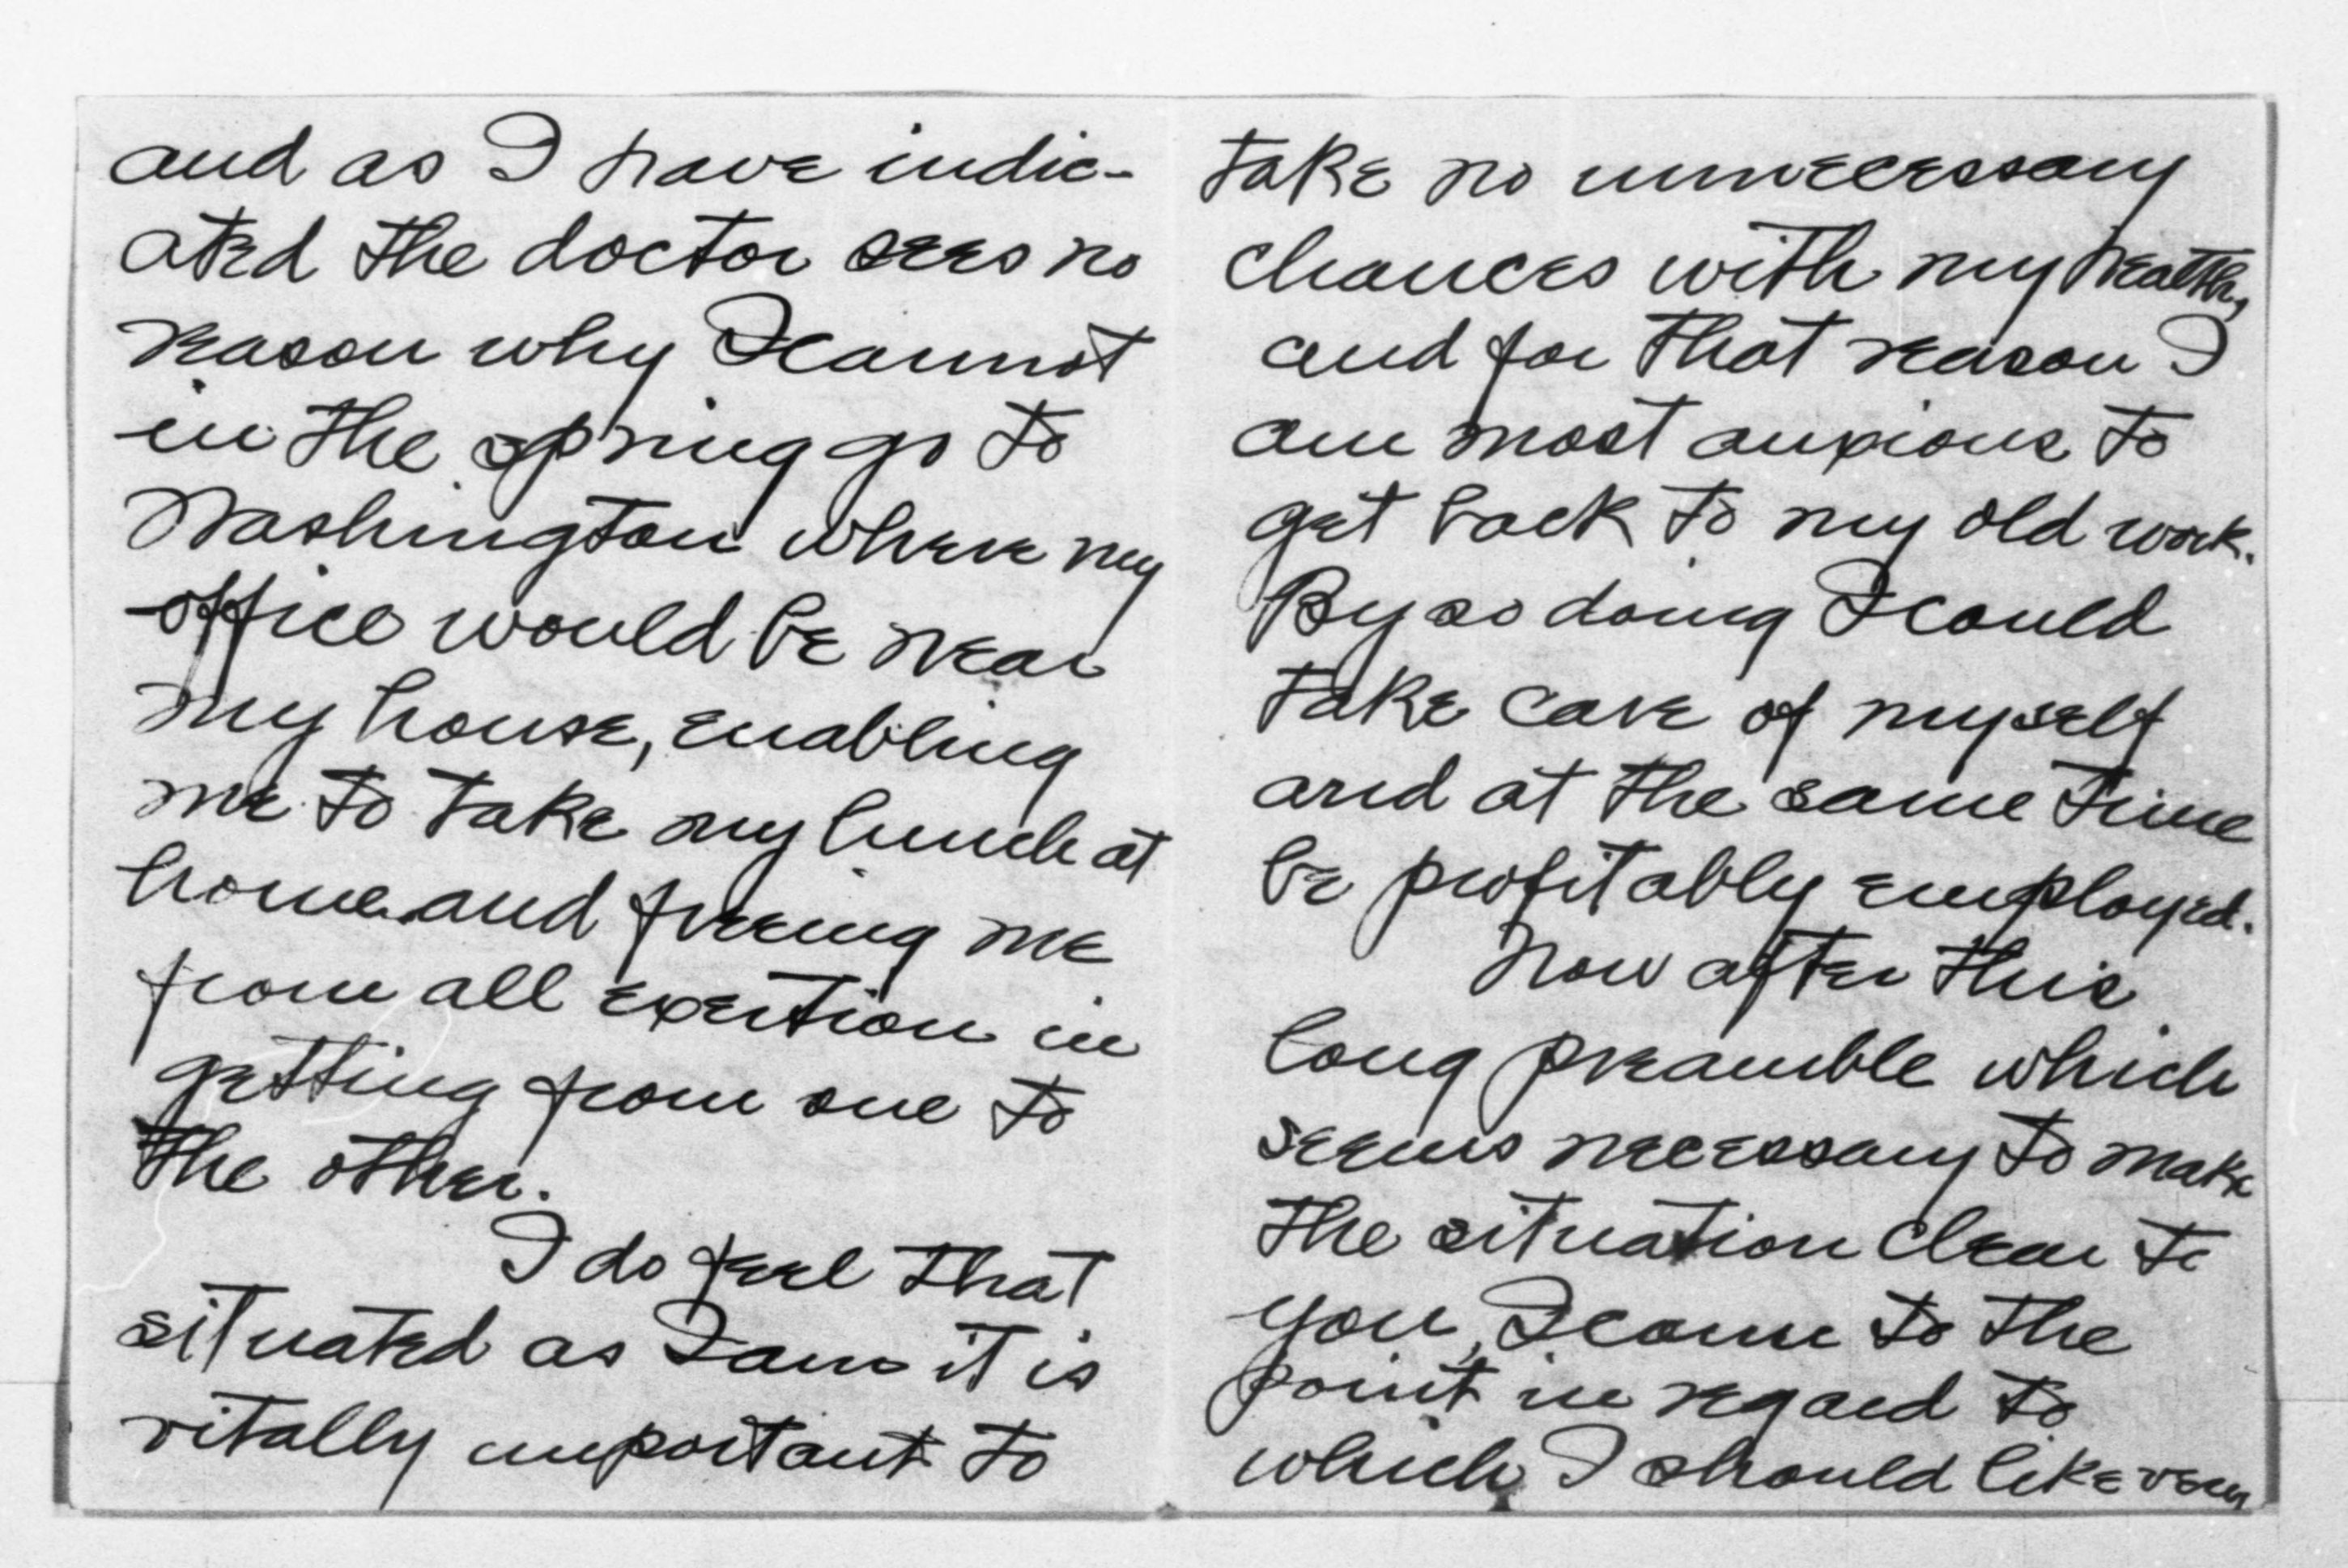 and as I have indic-
ated the doctor sees no
reason why I cannot
in the spring go to
Washington where my
office would be near
my house, enabling
me to take my lunch at
home and freeing me
from all exertion in
getting from one to
the other.
I do feel that
situated as I am it is
vitally important to
take no unnecessary
chances with my health,
and for that reason I
am most anxious to
get back to my old work.
By so doing I could
take care of myself
and at the same time
be profitably employed.
Now after this
long preamble which
seems necessary to make
the situation clear to
you, I come to the
point in regard to
which I should like very